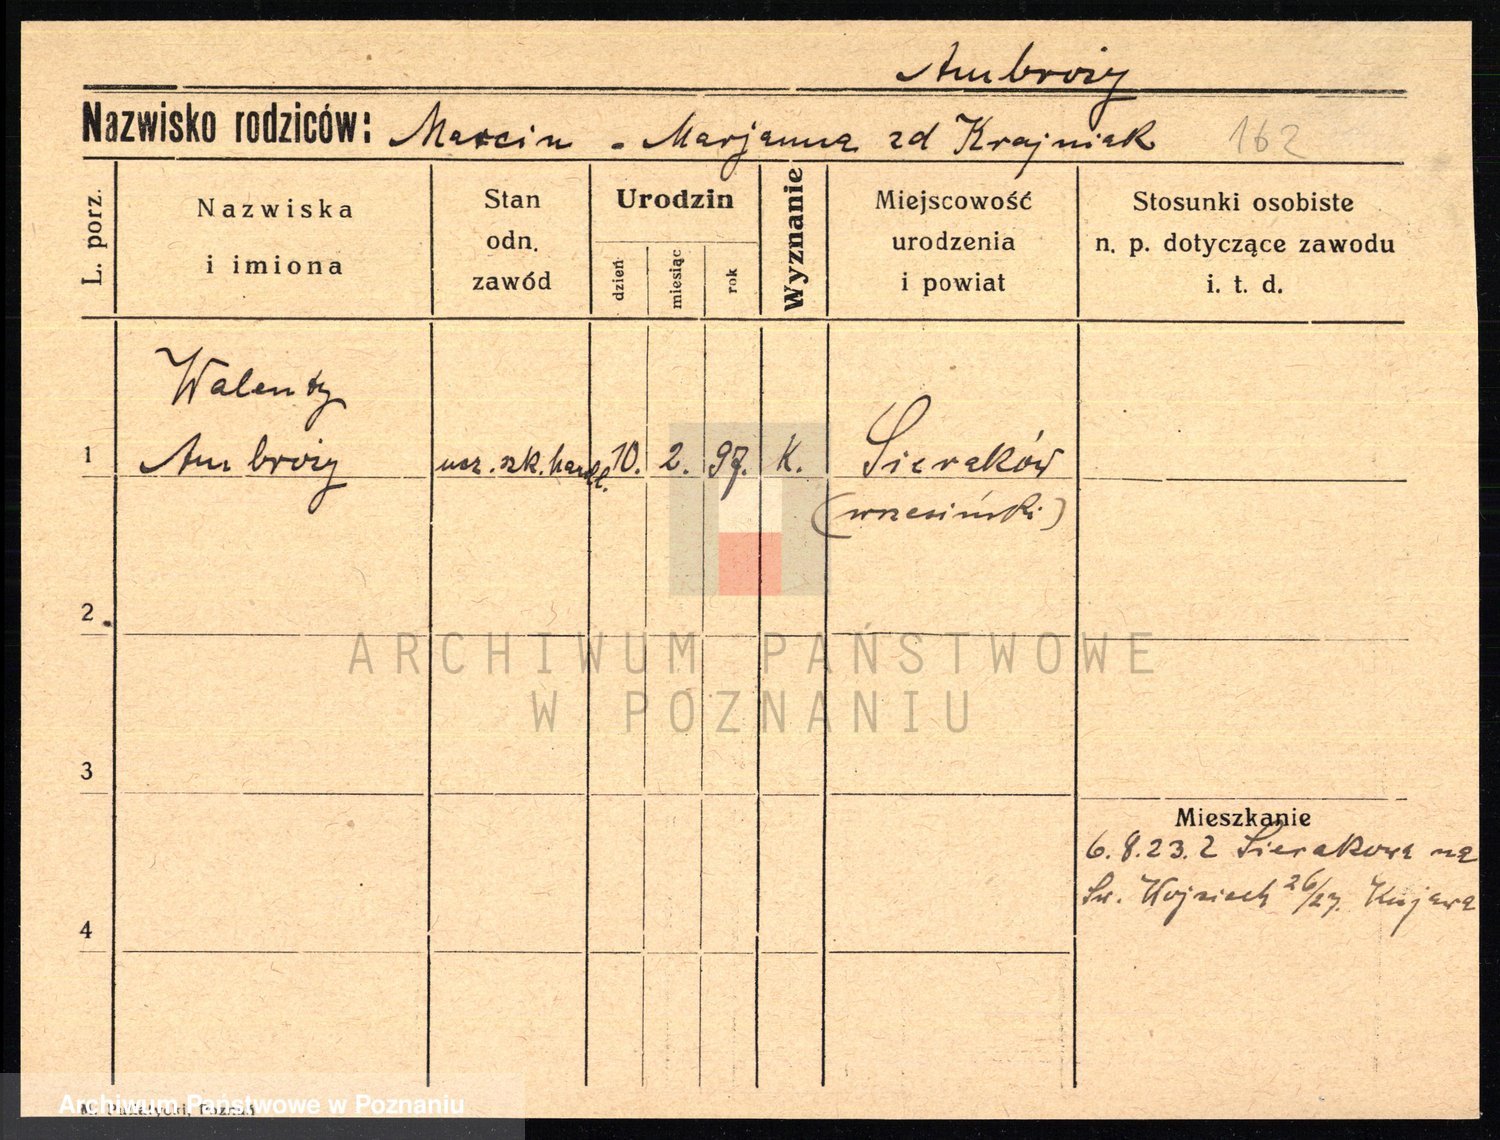 Ambroży
Nazwisko rodziców: Marcin - Marjanna zd Krajniak 162
L. porz.
Nazwiska
i imiona
Stan
odn.
zawód
Urodzin
dzień
miesiąc
rok
Wyznanie
Miejscowość
urodzenia
i powiat
Stosunki osobiste
n. p. dotyczące zawodu
i. t. d.
Walenty
1 Ambroży ucz. szk. handl. 10. 2. 97. K. Sieraków
(wrzesiński)
2
3
Mieszkanie
6.8.23. z Sierakowa na
Św. Wojciech 26/27. Kujawa
4
ARCHIWUM PAŃSTWOWE
W POZNANIU
Archiwum Państwowe w Poznaniu
Poznań